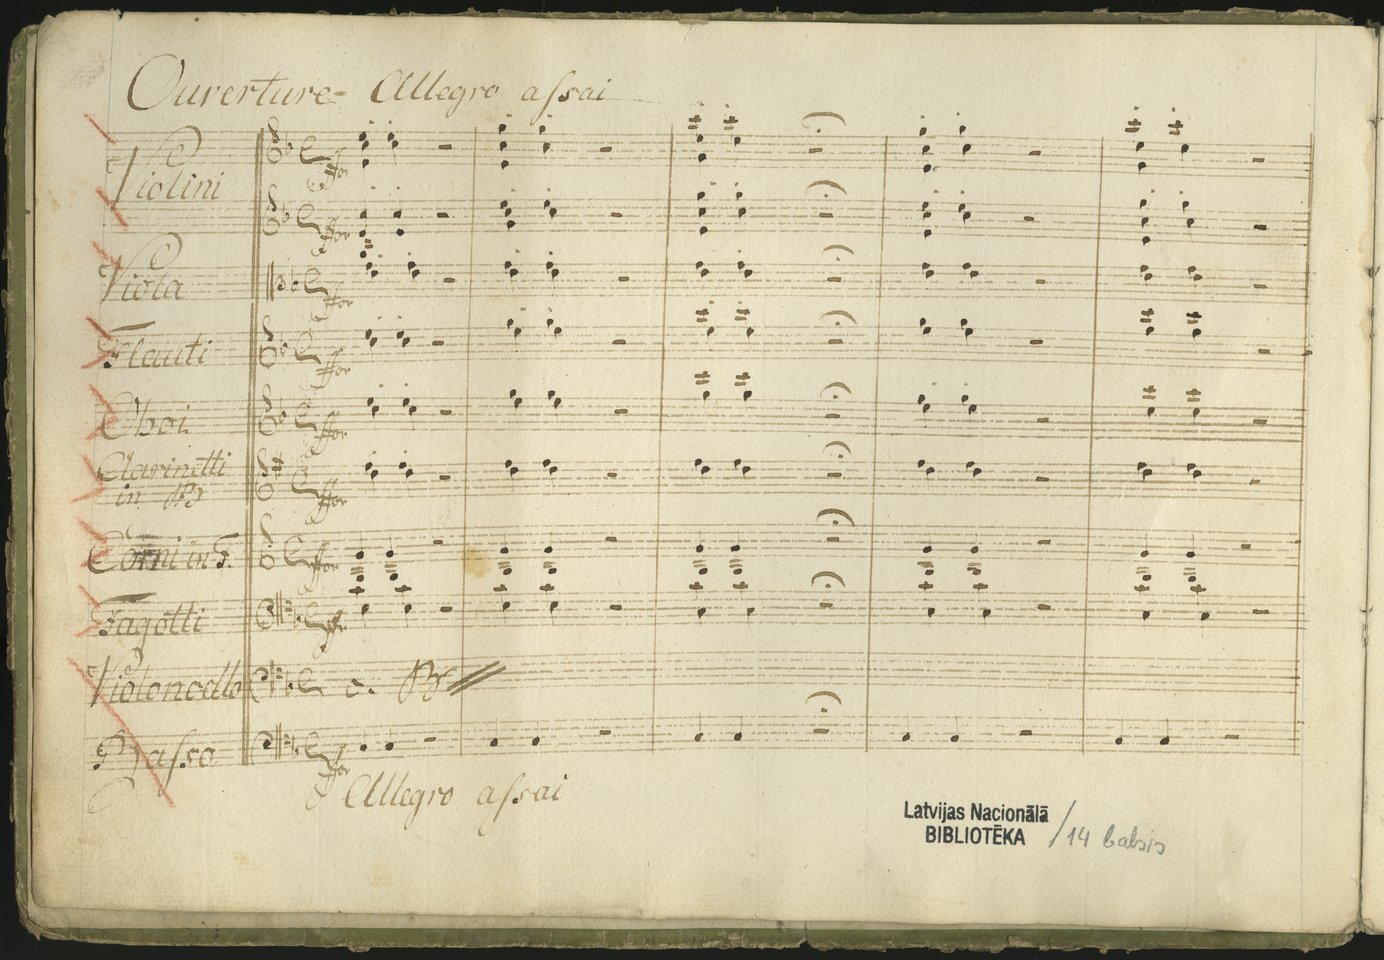 Ouverture Allegro assai
Violini
ffor
ffor
Viola
ffor
Flauti
ffor
Oboi
ffor
Clarinetti
in B
ffor
Corni in F.
ffor
Fagotti
ffor
Violoncello c. B
Basso
ffor
Allegro assai
Latvijas Nacionālā
BIBLIOTĒKA / 14 balsis